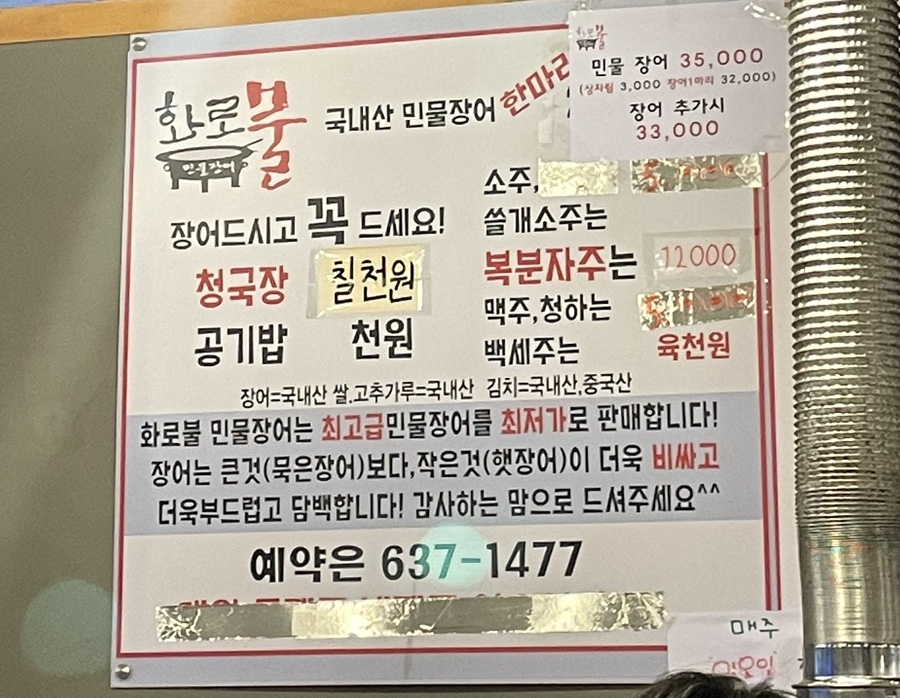 화로불
민물장어
국내산 민물장어 한마리
화로불
민물 장어 35,000
(상차림 3,000 장어1마리 32,000)
장어 추가시
33,000
장어드시고 꼭 드세요!
청국장 칠천원
공기밥 천원
소주,
쓸개소주는
복분자주는 12000
맥주,청하는
백세주는 육천원
장어=국내산 쌀,고추가루=국내산 김치=국내산,중국산
화로불 민물장어는 최고급민물장어를 최저가로 판매합니다!
장어는 큰것(묵은장어)보다,작은것(햇장어)이 더욱 비싸고
더욱부드럽고 담백합니다! 감사하는 맘으로 드셔주세요^^
예약은 637-1477
매주